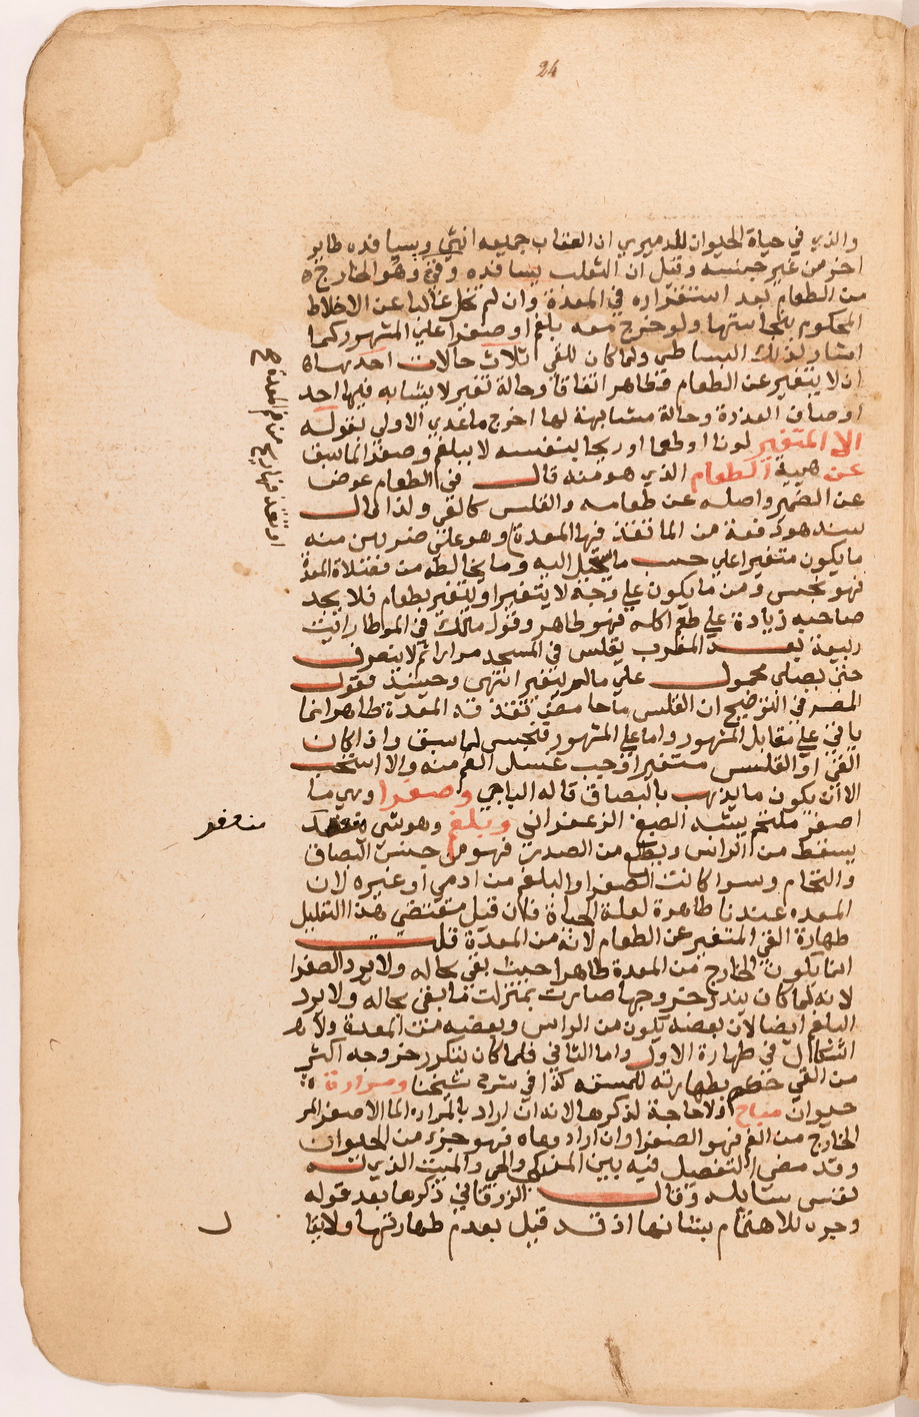 24
والذي في حياة الحيوان للدميري ان العقاب جميعه انثي ويسافده طاير
اخر من غير جنسه وقيل ان الثعلب يسافده وقئ وهو الخارج
من الطعام بعد استقراره في المعدة وان لم يخل غالبا عن الاخلاط
المحكوم بنجاستها ولو خرج معه بلغم او صفرا علي المشهور كما
اشار لذلك البساطي ولما كان للقي ثلاث حالات احديها
ان لا يتغير عن الطعام فطاهر اتفاقا وحالة تغير لا يشابه فيها احد
اوصاف العذرة وحالة مشابهة لها اخرج ما عدي الاولي بقوله
الا المتغير لونا او طعما او ريحا بنفسه لا ببلغم وصفرا كما سبق
عن هيية الطعام الذي هو منه قال في الطعام عوض
عن الضمير واصله عن طعامه والقلس كالقي ولذا قال
سند هو دفعة من الما تقذفها المعدة وهو علي ضربين منه
ما يكون متغيرا علي حسب ما يستحيل اليه وما يخالطه من فضلات المعدة
فهو نجس ومن ما يكون علي وجه لا يتغير او يتغير بطعام فلا يجد
صاحبه زيادة علي طعم اكله فهو طاهر وقول مالك في الموطا رايت
ربيعة بعد المغرب يقلس في المسجد مرارا ثم لا ينصرف
حتي يصلي محمول علي ما لم يتغير انتهي وحينيذ فقول
المصـ في التوضيح ان القلس ماحامض تقذفه المعدة طاهر انما
ياتي علي مقابل المشهور واما علي المشهور فنجس لما سبق واذا كان
القي او القلس متغيرا وجب غسل الفم منه والا استحب
الا ان يكون مما يذهب بالبصاق قاله الباجي وصفرا وهي ما
اصفر ملتحم يشبه الصبغ الزعفراني وبلغم وهو شي منعقد
يسقط من الراس ويطلع من الصدر فهو من جنس البصاق
والنخام وسوا كانت الصفرا والبلغم من ادمي او غيره لان
المعده عندنا طاهرة لعلة الحياة فان قيل مقتضي هذا التعليل
طهارة القي المتغير عن الطعام لانه من المعدة قلت
انما يكون الخارج من المعدة طاهرا حيث بقي بحاله ولا يرد الصفرا
لانه لما كان يندر خروجها صارت بمنزلة ما بقي بحاله ولا يرد
البلغم ايضا لان بعضه يكون من الراس وبعضه من المعدة ولا
اشكال في طهارة الاول واما الثاني فلما كان يتكرر خروجه اكثر
من القي حكم بطهارته للمشقة كذا في شرح شيخنا ومرارة
حيوان مباح ولا حاجة لذكرها لانه ان اراد بالمراره الما الاصفر المر
الخارج من الفم فهو الصفرا وان اراد وعاه فهو جزء من الحيوان
وقد مضي التفصيل فيه بين المذكي والحي والميت الذي له
نفس سايله وقال الزرقاني ذكرها بعد قوله
وجزءه للاهتمام بشانها اذ قد قيل بعدم طهارتها ولانها
منعقد